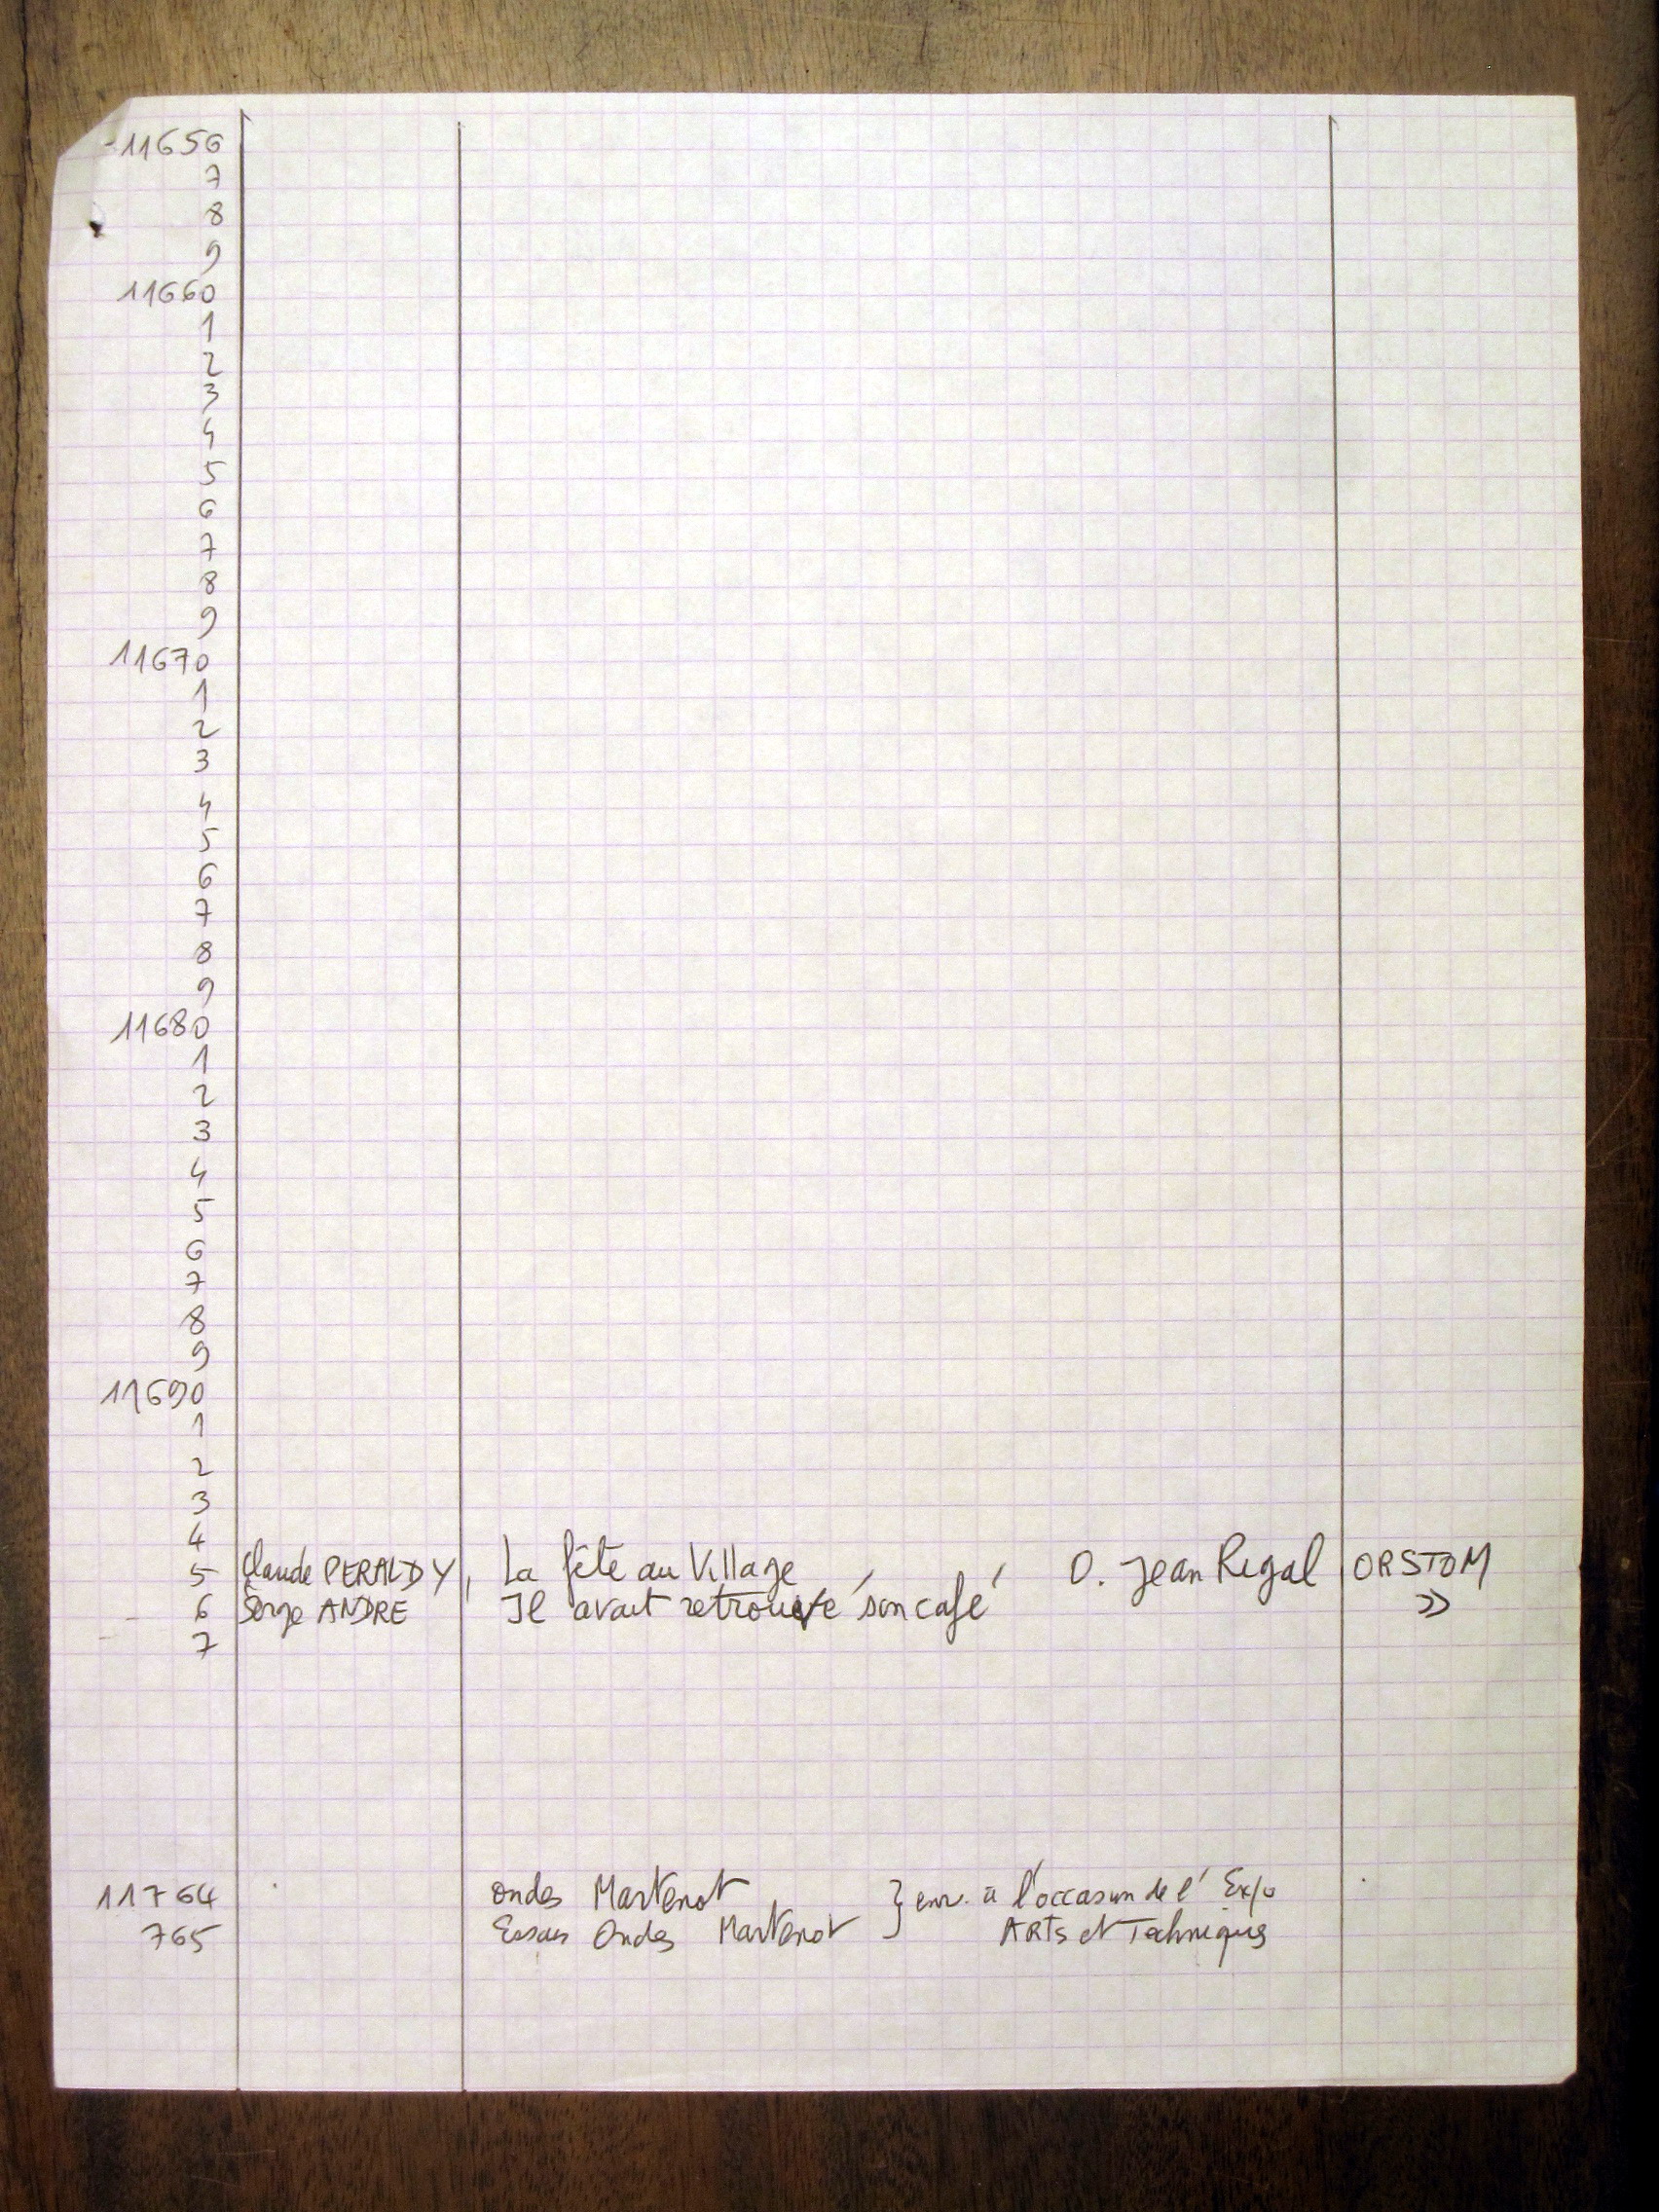 11656
7
8
9
11660
1
2
3
4
5
6
7
8
9
11670
1
2
3
4
5
6
7
8
9
11680
1
2
3
4
5
6
7
8
9
11690
1
2
3
4
5 Claude PERALDY, La fête au Village O. Jean Regal ORSTOM
6 Serge ANDRE Il avait retrouvé son café »
7
11764 Ondes Martenot } enr. à l'occasion de l' Expo
765 Essais Ondes Martenot ARTs et Techniques